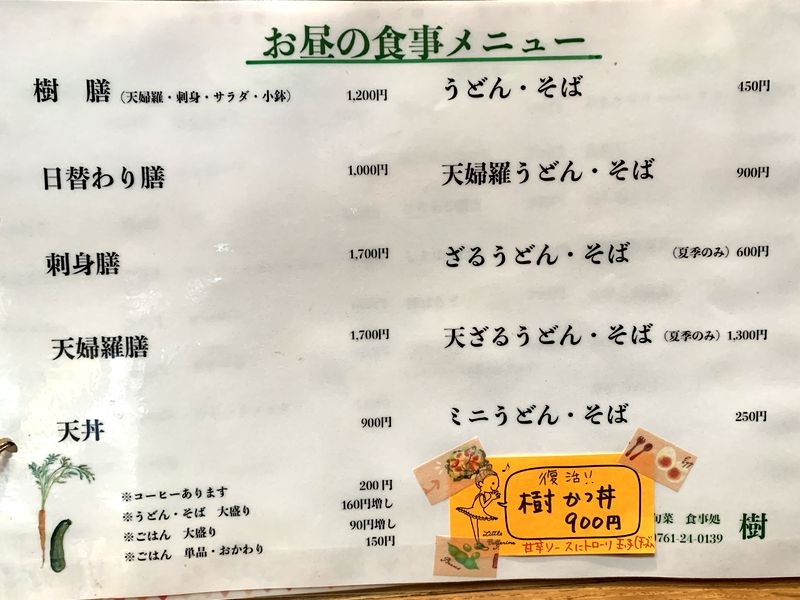 お昼の食事メニュー
樹 膳(天婦羅・刺身・サラダ・小鉢) 1,200円
日替わり膳 1,000円
刺身膳 1,700円
天婦羅膳 1,700円
天丼 900円
※コーヒーあります 200円
※うどん・そば 大盛り 160円増し
※ごはん 大盛り 90円増し
※ごはん 単品・おかわり 150円
うどん・そば 450円
天婦羅うどん・そば 900円
ざるうどん・そば (夏季のみ) 600円
天ざるうどん・そば (夏季のみ) 1,300円
ミニうどん・そば 250円
復活!!
樹かつ丼
900円
甘辛ソースにトローリ
Little
旬菜 食事処 樹
0761-24-0139